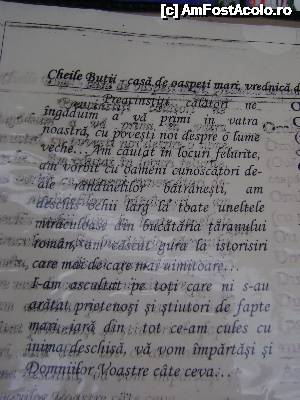 (c) AmFostAcolo.ro
Cheile Butii - casă de oaspeți mari, vrednică d
Preacinstiți călători ne
îngăduim a vă primi în vatra
noastră, cu povești noi despre o lume
veche... Am căutat în locuri felurite,
am vorbit cu oameni cunoscători de-
ale rânduielilor bătrânești, am
deschis ochii larg la toate uneltele
miraculoase din bucătăria țăranului
român, am căscat gura la istorisiri
care mai de care mai uimitoare...
I-am ascultat pe toți care ni s-au
arătat prietenoși și știutori de fapte
mari, iară din tot ce-am cules cu
inima deschisă, vă vom împărtăși și
Domniilor Voastre câte ceva...